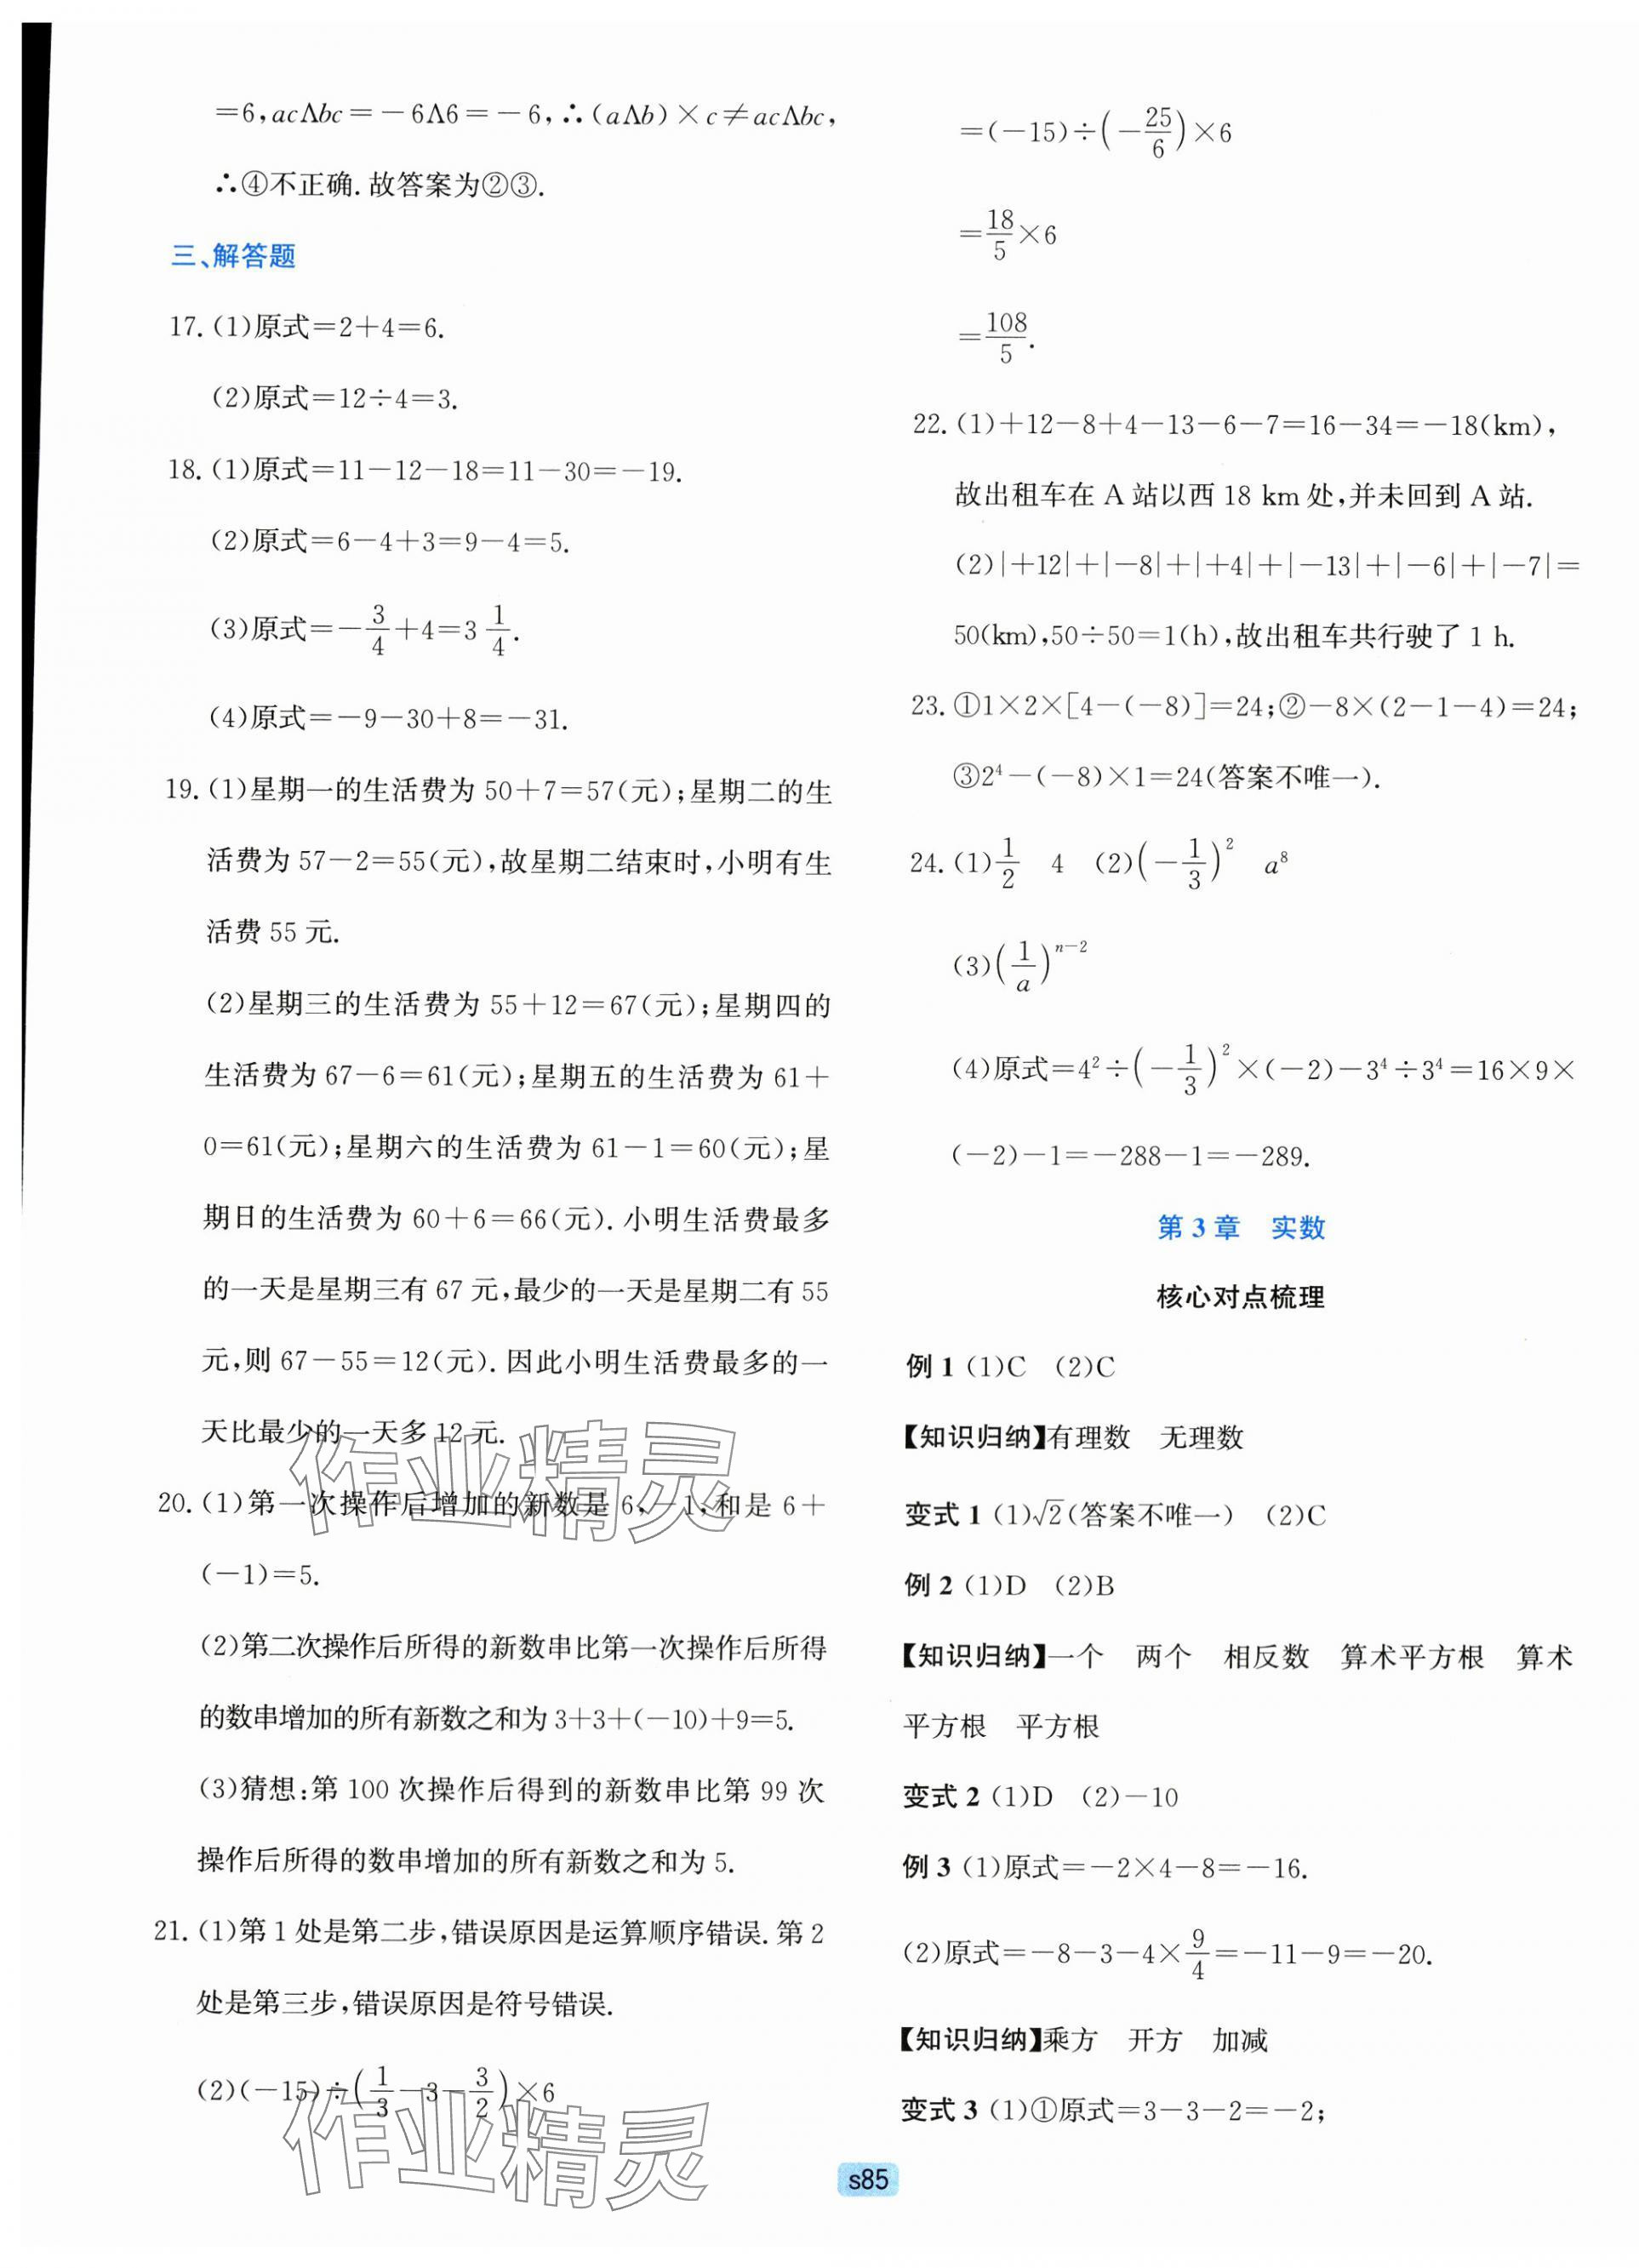 =6,ac∧bc=-6∧6=-6,∴(a∧b)×c≠ac∧bc,
∴④不正确.故答案为②③.
三、解答题
17.(1)原式=2+4=6.
(2)原式=12÷4=3.
18.(1)原式=11-12-18=11-30=-19.
(2)原式=6-4+3=9-4=5.
(3)原式=-3/4+4=3 1/4.
(4)原式=-9-30+8=-31.
19.(1)星期一的生活费为 50+7=57(元);星期二的生
活费为 57-2=55(元),故星期二结束时,小明有生
活费 55 元.
(2)星期三的生活费为 55+12=67(元);星期四的
生活费为 67-6=61(元);星期五的生活费为 61+
0=61(元);星期六的生活费为 61-1=60(元);星
期日的生活费为 60+6=66(元).小明生活费最多
的一天是星期三有 67 元,最少的一天是星期二有 55
元,则 67-55=12(元).因此小明生活费最多的一
天比最少的一天多 12 元.
20.(1)第一次操作后增加的新数是 6,-1,和是 6+
(-1)=5.
(2)第二次操作后所得的新数串比第一次操作后所得
的数串增加的所有新数之和为 3+3+(-10)+9=5.
(3)猜想:第 100 次操作后得到的新数串比第 99 次
操作后所得的数串增加的所有新数之和为 5.
21.(1)第 1 处是第二步,错误原因是运算顺序错误.第 2
处是第三步,错误原因是符号错误.
(2)(-15)÷(1/3-3-3/2)×6
=(-15)÷(-25/6)×6
=18/5×6
=108/5.
22.(1)+12-8+4-13-6-7=16-34=-18(km),
故出租车在 A 站以西 18 km 处,并未回到 A 站.
(2)|+12|+|-8|+|+4|+|-13|+|-6|+|-7|=
50(km),50÷50=1(h),故出租车共行驶了 1 h.
23.①1×2×[4-(-8)]=24;②-8×(2-1-4)=24;
③2⁴-(-8)×1=24(答案不唯一).
24.(1)1/2 4 (2)(-1/3)² a⁸
(3)(1/a)ⁿ⁻²
(4)原式=4²÷(-1/3)²×(-2)-3⁴÷3⁴=16×9×
(-2)-1=-288-1=-289.
第 3 章 实数
核心对点梳理
例 1 (1)C (2)C
【知识归纳】有理数 无理数
变式 1 (1)√2(答案不唯一) (2)C
例 2 (1)D (2)B
【知识归纳】一个 两个 相反数 算术平方根 算术
平方根 平方根
变式 2 (1)D (2)-10
例 3 (1)原式=-2×4-8=-16.
(2)原式=-8-3-4×9/4=-11-9=-20.
【知识归纳】乘方 开方 加减
变式 3 (1)①原式=3-3-2=-2;
作业精灵
作业精灵
s85